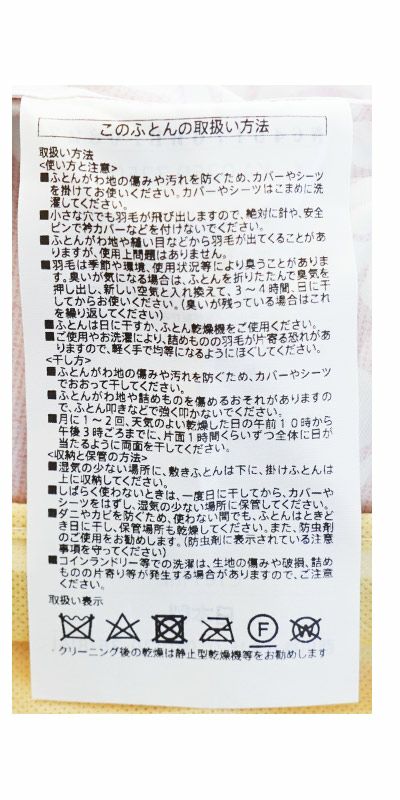 このふとんの取扱い方法
取扱い方法
<使い方と注意>
■ふとんがわ地の傷みや汚れを防ぐため、カバーやシーツ
を掛けてお使いください。カバーやシーツはこまめに洗
濯してください。
■小さな穴でも羽毛が飛び出しますので、絶対に針や、安全
ピンで衿カバーなどを付けないでください。
■ふとんがわ地や縫い目などから羽毛が出てくることがあ
りますが、使用上問題はありません。
■羽毛は季節や環境、使用状況等により臭うことがありま
す。臭いが気になる場合は、ふとんを折りたたんで臭気を
押し出し、新しい空気と入れ換えて、3～4時間、日に干
してからお使いください。(臭いが残っている場合はこれ
を繰り返してください)
■ふとんは日に干すか、ふとん乾燥機をご使用ください。
■ご使用やお洗濯により、詰めものの羽毛が片寄る恐れがあ
りますので、軽く手で均等になるようにほぐしてください。
<干し方>
■ふとんがわ地の傷みや汚れを防ぐため、カバーやシーツ
でおおって干してください。
■ふとんがわ地や詰めものを傷めるおそれがありますの
で、ふとん叩きなどで強く叩かないでください。
■月に1～2回、天気のよい乾燥した日の午前10時から
午後3時ごろまでに、片面1時間くらいずつ全体に日が
当たるように両面を干してください。
<収納と保管の方法>
■湿気の少ない場所に、敷きふとんは下に、掛けふとんは
上に収納してください。
■しばらく使わないときは、一度日に干してから、カバーや
シーツをはずし、湿気の少ない場所に保管してください。
■ダニやカビを防ぐため、使わない間でも、ふとんはときど
き日に干し、保管場所も乾燥してください。また、防虫剤
のご使用をお勧めします。(防虫剤に表示されている注意
事項を守ってください)
■コインランドリー等での洗濯は、生地の傷みや破損、詰め
ものの片寄り等が発生する場合がありますので、ご注意
ください。
取扱い表示
F W
・クリーニング後の乾燥は静止型乾燥機等をお勧めします